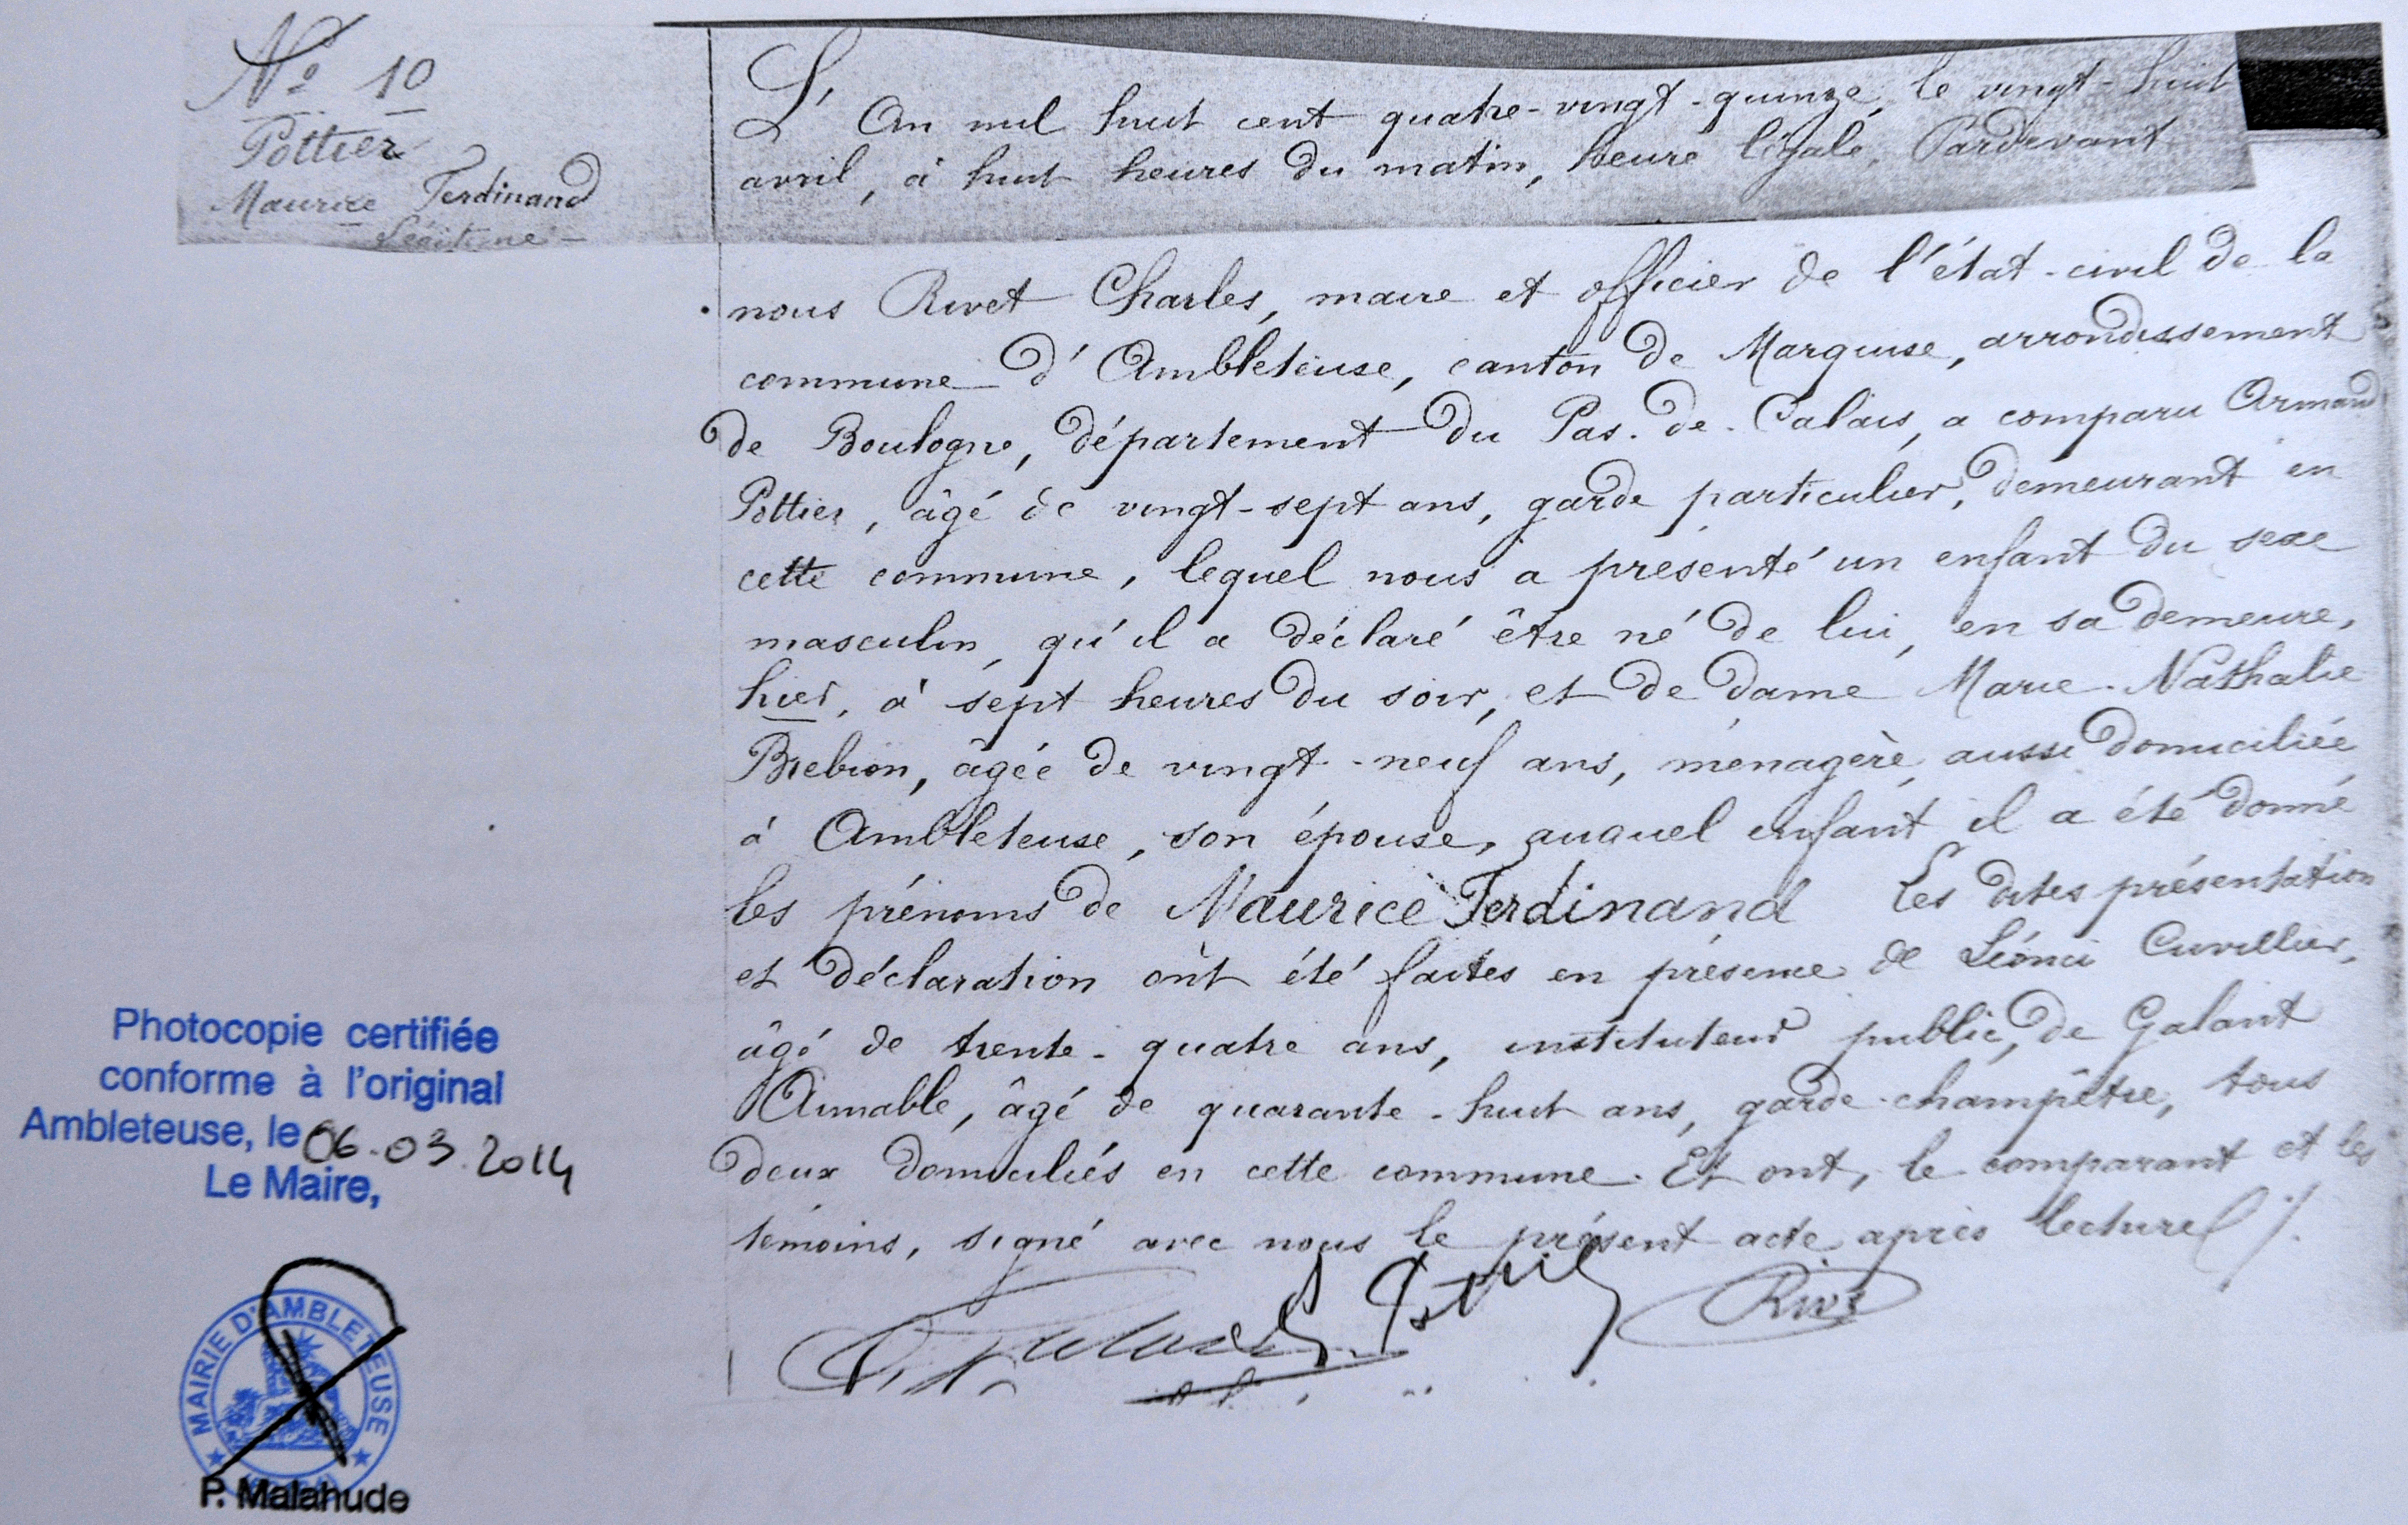 Nº 10
Pottier
Maurice Ferdinand
Légitime
L'An mil huit cent quatre-vingt-quinze, le vingt-huit
avril, à huit heures du matin, heure légale, Pardevant
nous Rivet Charles, maire et officier de l'état-civil de la
commune d'Ambleteuse, canton de Marquise, arrondissement
de Boulogne, département du Pas-de-Calais, a comparu Armand
Pottier, âgé de vingt-sept ans, garde particulier, demeurant en
cette commune, lequel nous a présenté un enfant du sexe
masculin, qu'il a déclaré être né de lui, en sa demeure,
hier, à sept heures du soir, et de dame Marie-Nathalie
Brebion, âgée de vingt-neuf ans, ménagère, aussi domiciliée
à Ambleteuse, son épouse, auquel enfant il a été donné
les prénoms de Maurice Ferdinand Les dites présentation
et déclaration ont été faites en présence de Léonci Cuvillier,
âgé de trente-quatre ans, instituteur public, de Galant
Aimable, âgé de quarante-huit ans, garde-champêtre, tous
deux domiciliés en cette commune. Et ont, le comparant et les
témoins, signé avec nous le présent acte après lecture ./.
Rivet
Photocopie certifiée
conforme à l'original
Ambleteuse, le 06.03.2014
Le Maire,
MAIRIE D'AMBLETEUSE
P. Malahude